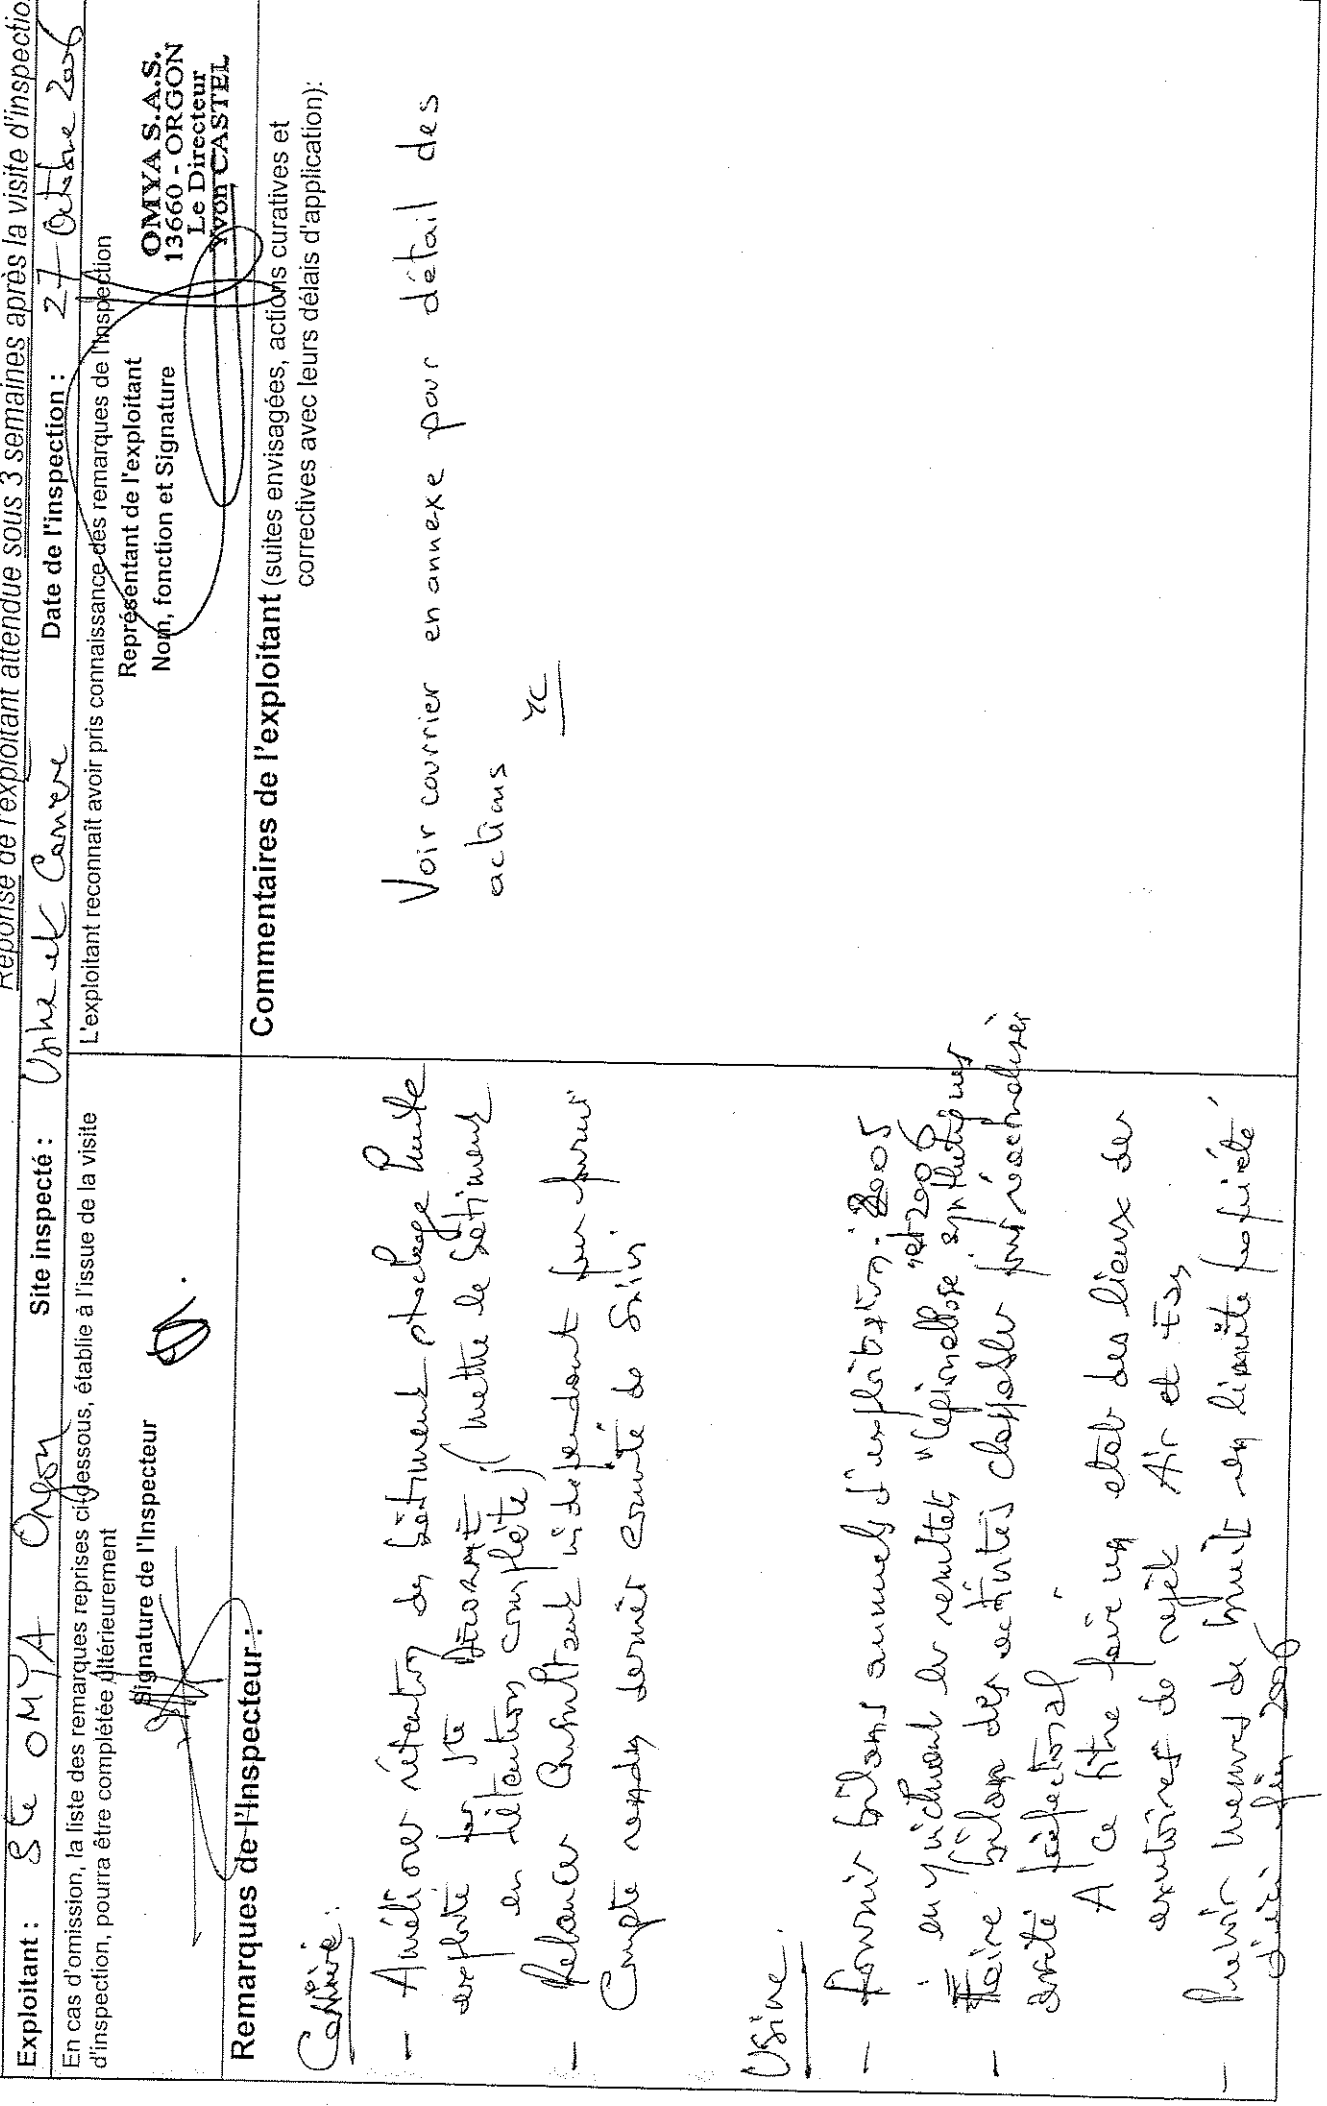 Réponse de l'exploitant attendue sous 3 semaines après la visite d'inspection
Exploitant : Sté OMYA Orgon Site inspecté : Usine et Carrière Date de l'inspection : 27 Octobre 2006
En cas d'omission, la liste des remarques reprises ci-dessous, établie à l'issue de la visite
d'inspection, pourra être complétée ultérieurement
Signature de l'Inspecteur
L'exploitant reconnaît avoir pris connaissance des remarques de l'Inspection
Représentant de l'exploitant
Nom, fonction et Signature
OMYA S.A.S.
13660 - ORGON
Le Directeur
Yvon CASTEL
Remarques de l'Inspecteur :
Carrière :
- Améliorer rétention du bâtiment stockage huile
exploité par Sté (mettre le bâtiment
en rétention complète)
- Relancer Consultant indépendant pour fournir
Compte rendu dernier comité de suivi
Usine.
- fournir bilans annuels d'exploitation. 2005
et 2006
en y incluant les resultats "légionellose" synthétiques
- Faire bilan des activités classables pour réactualiser
arrêté préfectoral
A ce titre faire un état des lieux des
exutoires de rejets Air et Eau
- Prévoir mesures de bruit en limite propriété
d'ici fin 2006
Commentaires de l'exploitant (suites envisagées, actions curatives et
correctives avec leurs délais d'application):
Voir courrier en annexe pour détail des
actions
YC